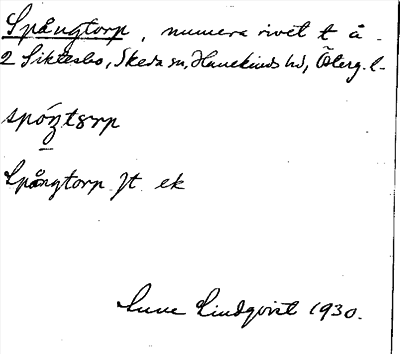 Spångtorp, numera rivet t å.
2 Siktesbo, Skeda sn, Hanekinds hd, Österg. l.
spóŋtɜrp
Spångtorp Jt ek
Sune Lindqvist 1930.